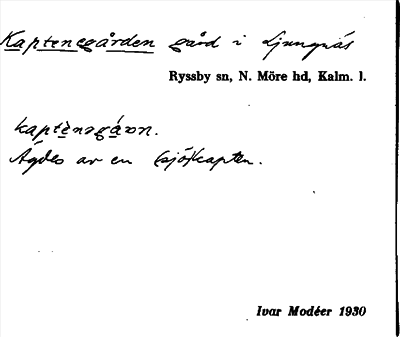 Kaptenegården gård i Ljungnäs
Ryssby sn, N. Möre hd, Kalm. l.
kaptènsgá̱ɒn.
Ägdes av en (sjö)kapten.
Ivar Modéer 1930